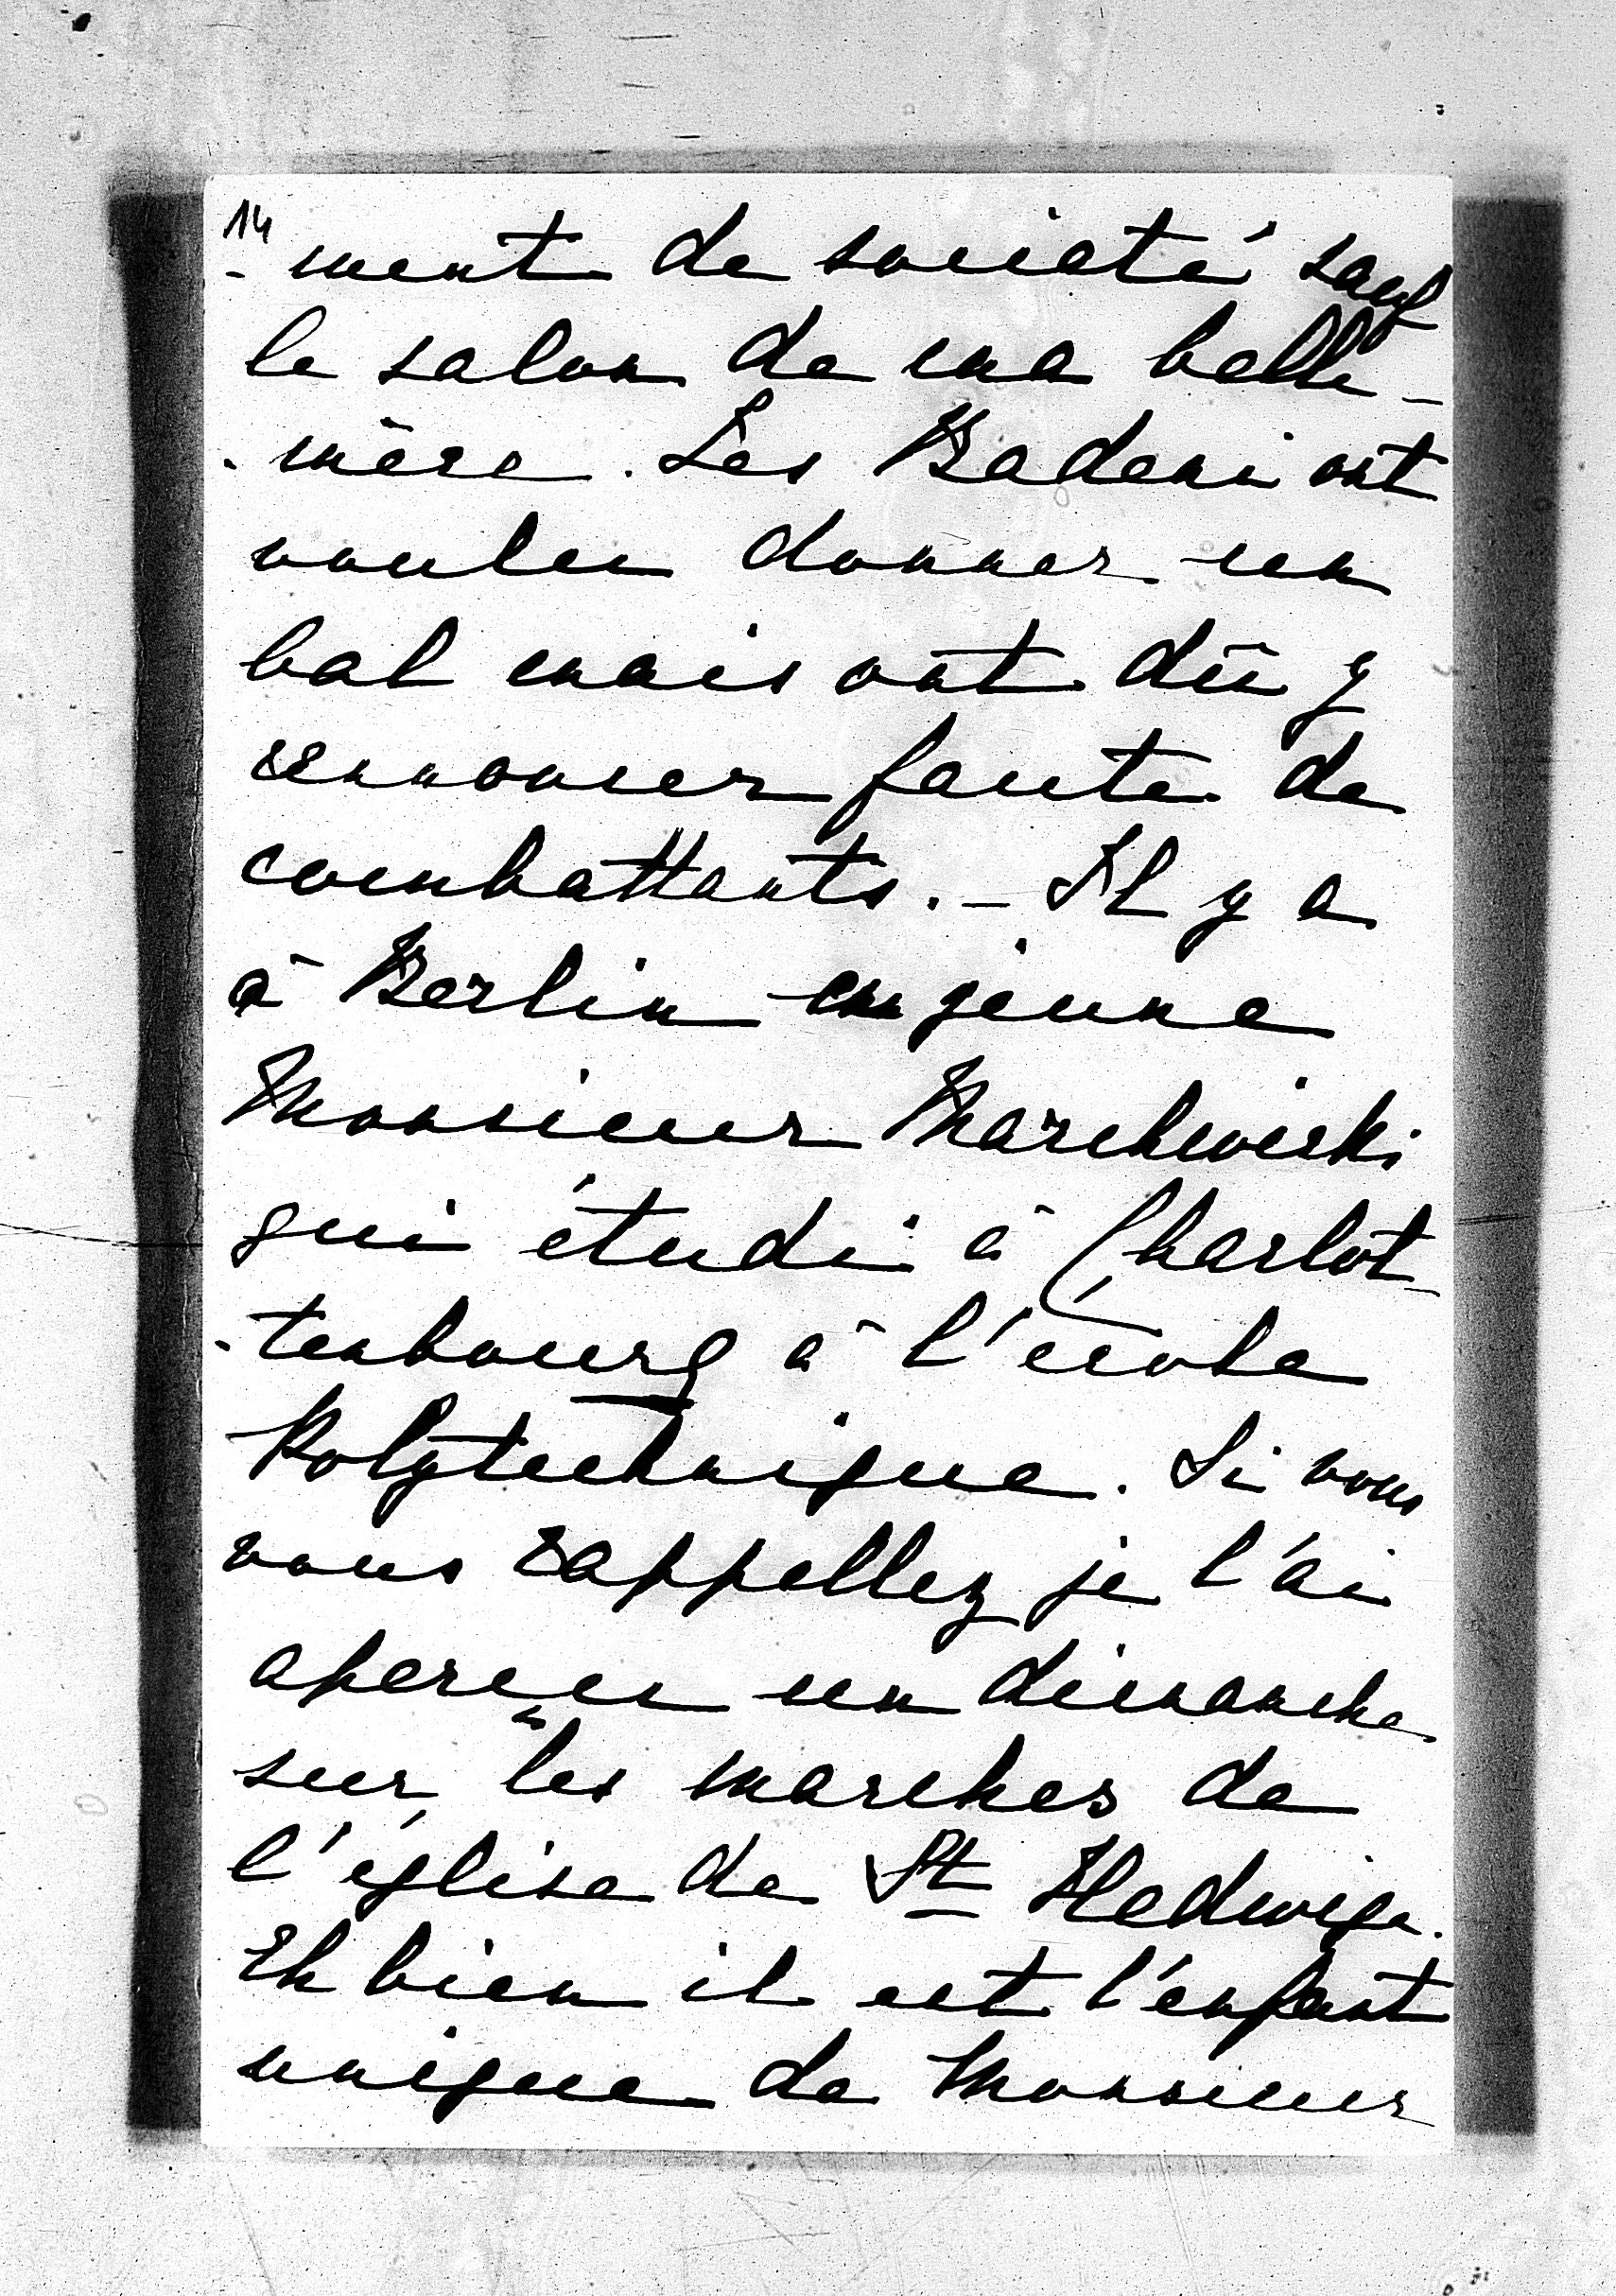 14
- ment de societé sauf
le salon de ma belle -
- mère. Les Badeni ont
voulu donner un
bal mais ont dû y
renoncer faute de
combattants. - Il y a
à Berlin un jeune
Monsieur Marchwicki
qui étudi à Charlot
- tenbourg à l'école
Polytechnique. Si vous
vous rappellez je l'ai
aperçu un dimanche
sur les marches de
l'église de St Hedwige.
Eh bien il est l'enfant
unique de Monsieur